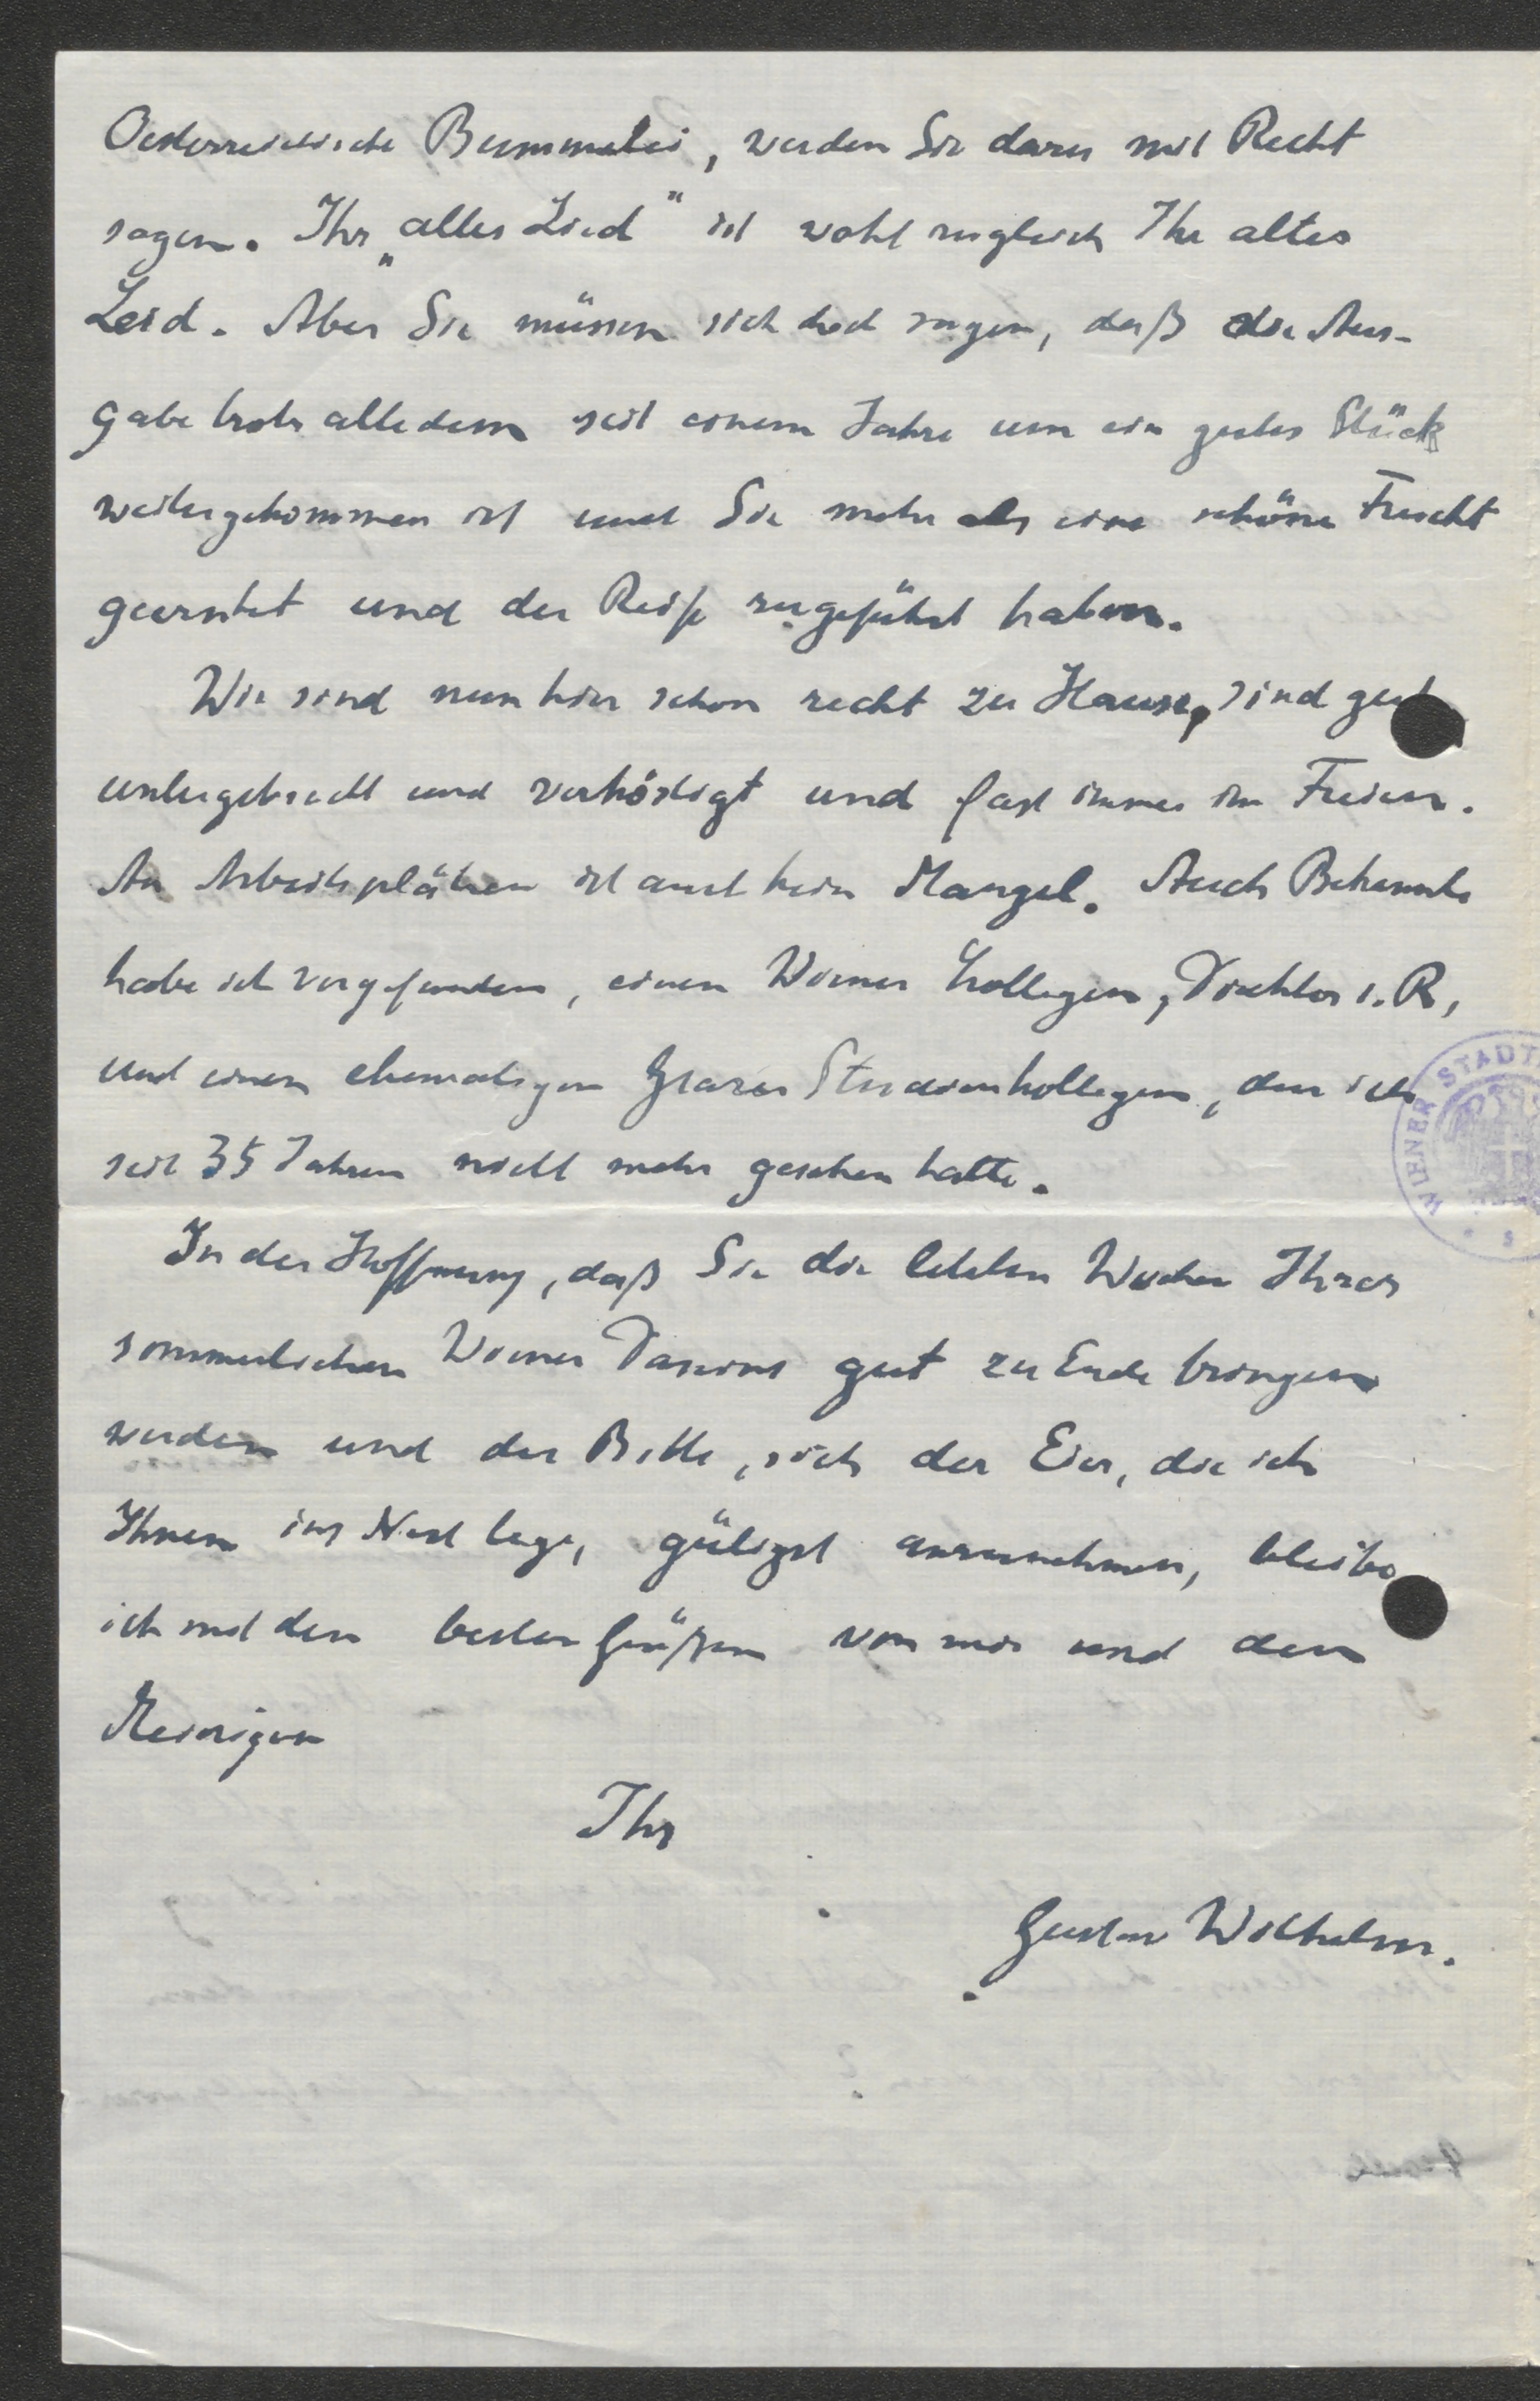 Oesterreichische Bummelei, werden Sie dazu mit Recht
sagen. Ihr „altes Lied" ist wohl zugleich Ihr altes
Leid. Aber Sie müssen sich doch sagen, daß die Aus-
gabe trotz alledem seit einem Jahre um ein gutes Stück
weitergekommen ist und Sie mehr als eine schöne Frucht
geerntet und der Reife zugeführt haben.
Wir sind nun hier schon recht zu Hause, sind gut
untergebracht und verköstigt und fast immer im Freien.
An Arbeitsplätzen ist auch kein Mangel. Auch Bekannte
habe ich vorgefunden, einen Wiener Kollegen, Direktor i. R,
und einen ehemaligen Grazer Studienkollegen, den ich
seit 35 Jahren nicht mehr gesehen hatte.
In der Hoffnung, daß Sie die letzten Wochen Ihres
sommerlichen Wiener Daseins gut zu Ende bringen
werden und der Bitte, sich der Eier, die ich
Ihnen ins Nest lege, gütigst anzunehmen, bleibe
ich mit den besten Grüßen von mir und den
Meinigen
Ihr
Gustav Wilhelm.
WIENER STADT